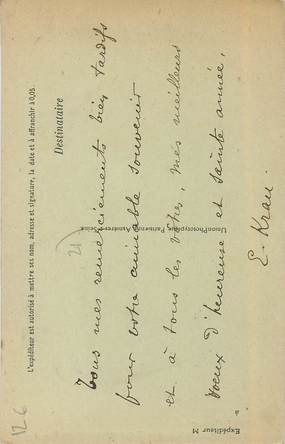 L'expéditeur est autorisé à mettre ses nom, adresse et signature, la date et à affranchir à 0,05
Destinataire
Tous mes remerciements bien tardifs
pour votre aimable souvenir
et à tous les vôtres, mes meilleurs
voeux d'heureuse et sainte année.
E. Krau
Union Phototypique Parisienne, Asnières-Seine
Expéditeur M
21
126